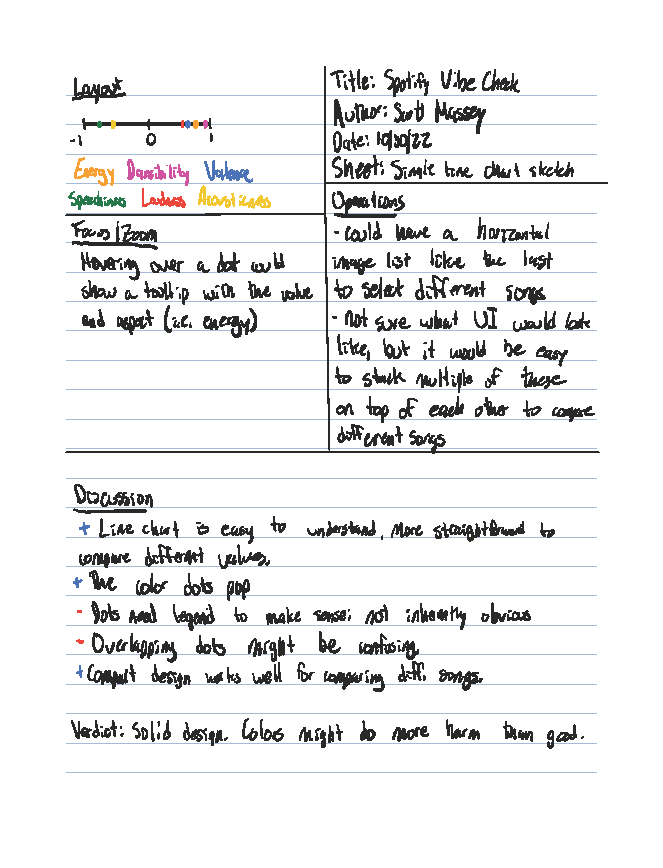 Layout
-1 0 1
Energy Danceability Valence
Speechiness Loudness Acousticness
Title: Spotify Vibe Check
Author: Scott Massey
Date: 10/30/22
Sheet: Simple line chart sketch
Focus/Zoom
Hovering over a dot would
show a tooltip with the value
and aspect (i.e. energy)
Operations
- could have a horizontal
image list like the last
to select different songs
- not sure what UI would look
like, but it would be easy
to stack multiple of these
on top of each other to compare
different songs
Discussion
+ Line chart is easy to understand, more straightforward to
compare different values.
+ The color dots pop
- Dots need legend to make sense; not inherently obvious
- Overlapping dots might be confusing
+ Compact design works well for comparing diff. songs.
Verdict: Solid design. Colors might do more harm than good.